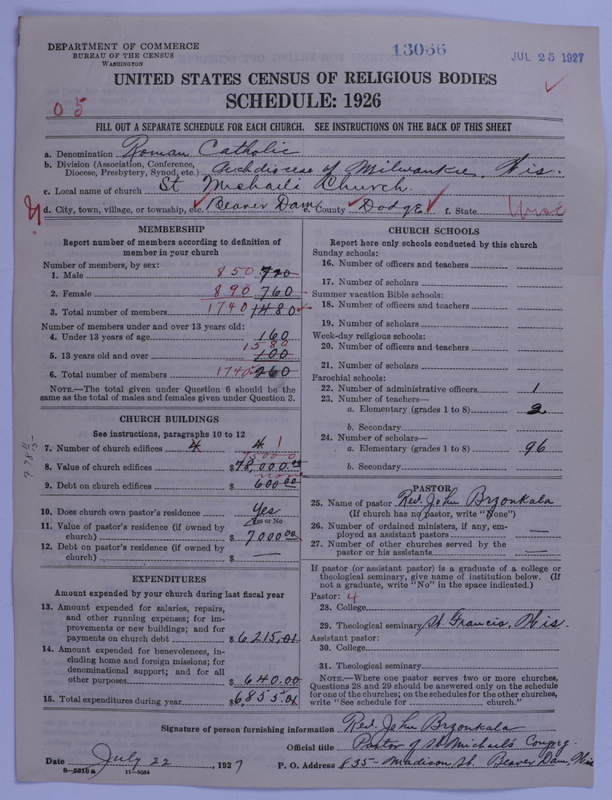 DEPARTMENT OF COMMERCE
BUREAU OF THE CENSUS
WASHINGTON
13066
JUL 25 1927
UNITED STATES CENSUS OF RELIGIOUS BODIES
SCHEDULE: 1926
05
FILL OUT A SEPARATE SCHEDULE FOR EACH CHURCH. SEE INSTRUCTIONS ON THE BACK OF THIS SHEET
a. Denomination Roman Catholic
b. Division (Association, Conference, Diocese, Presbytery, Synod, etc.) Archdiocese of Milwaukee, Wis.
c. Local name of church St. Michael's Church.
d. City, town, village, or township, etc. Beaver Dam e. County Dodge f. State
MEMBERSHIP
Report number of members according to definition of
member in your church
Number of members, by sex:
1. Male 850 720
2. Female 890 760
3. Total number of members 1740 1480
Number of members under and over 13 years old:
4. Under 13 years of age 160
5. 13 years old and over 1580 100
6. Total number of members 1740 260
NOTE.—The total given under Question 6 should be
the same as the total of males and females given under Question 3.
CHURCH BUILDINGS
See instructions, paragraphs 10 to 12
7. Number of church edifices 4 4 1
8. Value of church edifices $78,000.00
9. Debt on church edifices $600.00
10. Does church own pastor's residence Yes
Yes or No
11. Value of pastor's residence (if owned by
church) $7000.00
12. Debt on pastor's residence (if owned by
church) $ —
EXPENDITURES
Amount expended by your church during last fiscal year
13. Amount expended for salaries, repairs,
and other running expenses; for im-
provements or new buildings; and for
payments on church debt $6215.01
14. Amount expended for benevolences, in-
cluding home and foreign missions; for
denominational support; and for all
other purposes $640.00
15. Total expenditures during year $6,855.01
CHURCH SCHOOLS
Report here only schools conducted by this church
Sunday schools:
16. Number of officers and teachers
17. Number of scholars
Summer vacation Bible schools:
18. Number of officers and teachers
19. Number of scholars
Week-day religious schools:
20. Number of officers and teachers
21. Number of scholars
Parochial schools:
22. Number of administrative officers 1
23. Number of teachers—
a. Elementary (grades 1 to 8) 2
b. Secondary
24. Number of scholars—
a. Elementary (grades 1 to 8) 96
b. Secondary
PASTOR
25. Name of pastor Rev. John Brzonkala
(If church has no pastor, write "None")
26. Number of ordained ministers, if any, em-
ployed as assistant pastors —
27. Number of other churches served by the
pastor or his assistants —
If pastor (or assistant pastor) is a graduate of a college or
theological seminary, give name of institution below. (If
not a graduate, write "No" in the space indicated.)
Pastor: 4
28. College
29. Theological seminary St. Francis, Wis.
Assistant pastor:
30. College
31. Theological seminary
NOTE.—Where one pastor serves two or more churches,
Questions 28 and 29 should be answered only on the schedule
for one of the churches; on the schedules for the other churches,
write "See schedule for church."
Signature of person furnishing information Rev. John Brzonkala
Official title Pastor of St. Michael's Congreg.
Date July 22, 1927 P. O. Address 835- Madison St. Beaver Dam, Wis
8-5518a 11-9584